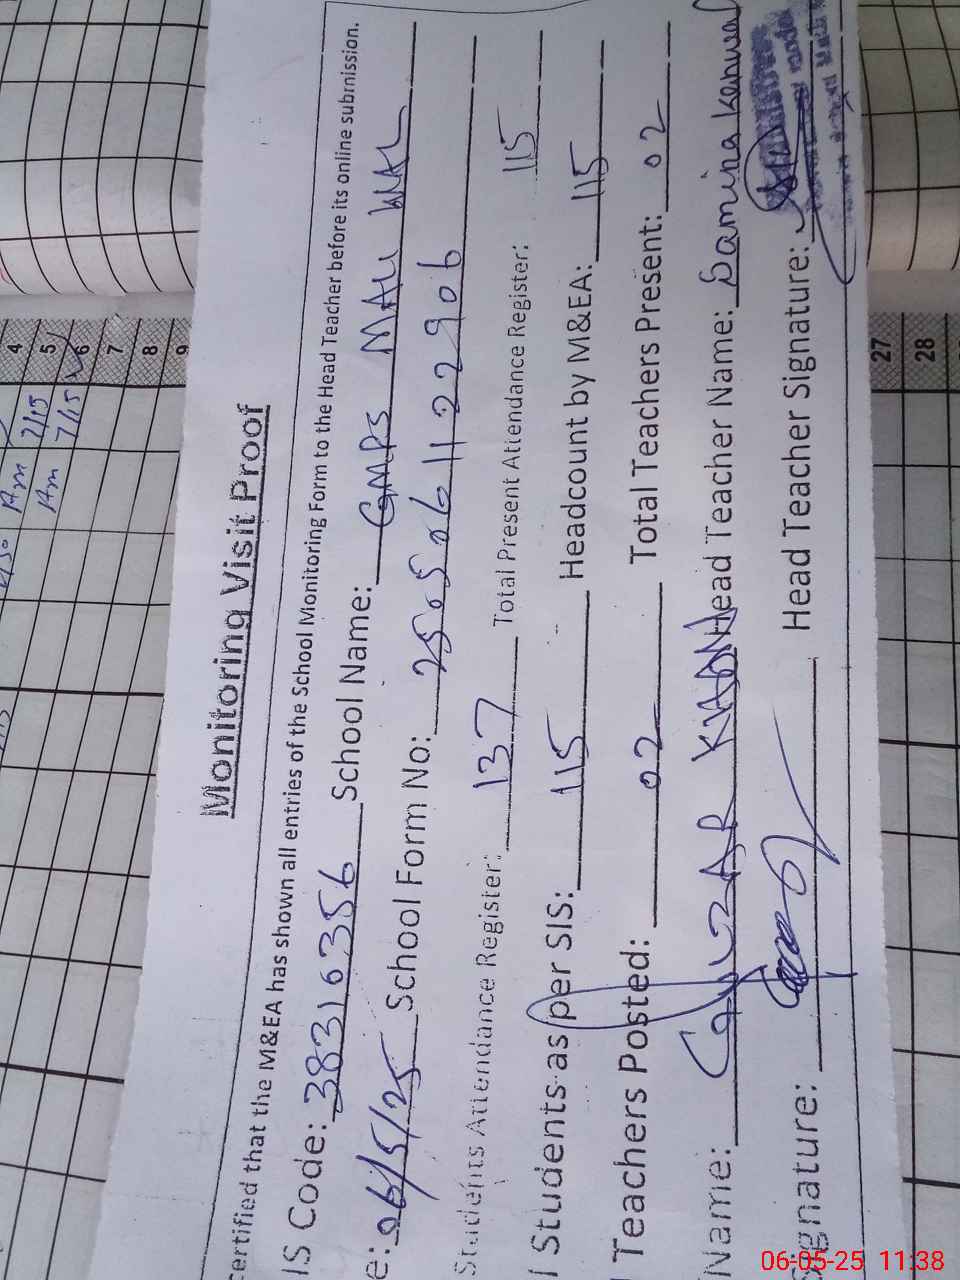 Monitoring Visit Proof
certified that the M&EA has shown all entries of the School Monitoring Form to the Head Teacher before its online submission.
IS Code: 38316356 School Name: GMPS MAU WAL
e: 06/5/25 School Form No: 25050611 22906
Students Attendance Register: 137 Total Present Attendance Register: 115
l Students as per SIS: 115 Headcount by M&EA: 115
Teachers Posted: 02 Total Teachers Present: 02
Name: Head Teacher Name: Samina Kanwal
Signature: Head Teacher Signature:
4
5
6
7
8
9
27
28
Am 7/15
Am 7/15
06-05-25 11:38